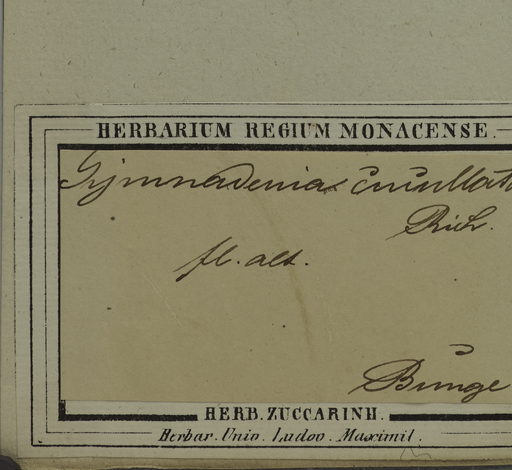 HERBARIUM REGIUM MONACENSE.
Gymnadenia cucullat
Rich.
fl. alt.
Bunge
HERB. ZUCCARINII.
Herbar. Univ. Ludov. Maximil.